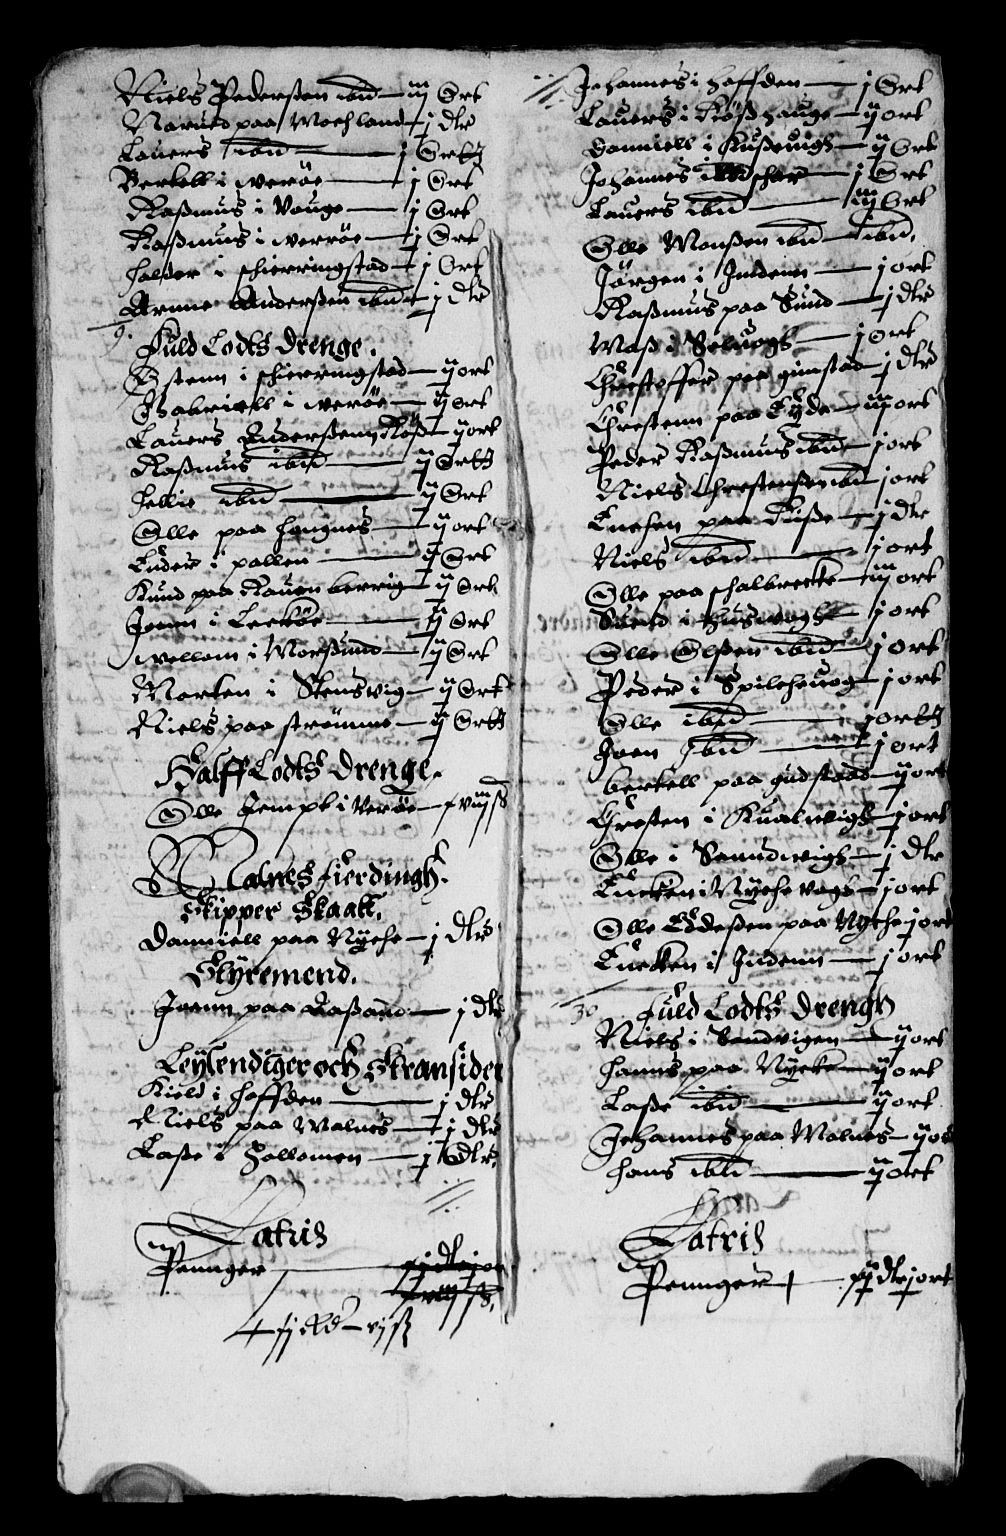 Niels Pederßen ibid — iij Ort
Naruid paa Mochland — j dlr
Lauers ibid — j Ort
Bertell i werøe — j Ort
Raßmus i Vauge — j Ort
Raßmus i werrøe — j Ort
Halßor i schierringstad — j Ort
Arnne Anderßen ibid — j dlr
9. Fuld Lodts drenge.
Ostenn i schierringstad — ij ort
Gabriell i werøe — ij ort
Lauers Anderßenn Röß — ij ort
Raßmus ibid — ij Ort
Hellie ibid — ij Ort
Olle paa Hangnes — ij ort
Ender i pollen — ij Ort
Knud paa Rauen berrig — ij Ort
Jonn i Leeköe — ij Ort
wellom i Morsund — ij Ort
Morten i Stensvig — ij Ort
Niels paa strømme — ij Ort
Halff Lodts drenge.
Olle Jempt i Verøe — xviij ß
Malnes fierdingh.
Skipper Skaatt.
Danniell paa Nyche — j dlr
Styremend.
Joenn paa Laßand — j dlr
Leylendiger och Stransider
Kield i Hoffden — j dlr
Niels paa Malnes — j dlr
Laße i Hollomen — j dlr
Latris
Pennger
Johannes i Hoffden — j Ort
Lauers i Rößhauge — ij ort
Danniell i Kußeuigh — ij Ort
Johannes — j Ort
Lauers ibid — iij Ort
Olle Monßen ibid — ibid.
Jörgen i Indenn — j ort
Raßmus paa Sund — j dlr
Maß i Seluogh — j Ort
Christoffer paa gimstad — j dlr
Chrestenn paa Eyde — iij ort
Peder Raßmus ibid — j ort
Niels Chrestenßen ibid — j ort
Enchen paa Riße — j dlr
Niels ibid — j ort
Olle paa schalbrecke — iij ort
Suend i Huswogh — j ort
Olle Olßen ibid — j ort
Peder i Spilcheuog — j ort
Olle ibid — j ort
Joen ibid — j ort
Bertell paa gudstaad — ij ort
Chresten i Kualwigh — j ort
Olle i Sanndwigh — j dlr
Encken i Nyche vogh — j ort
Olle Eddeßen paa Nyche j ort
Encken i Indenn — j ort
30 Fuld Lodts drengh
Niels i Sandvigen — ij ort
Hanns paa Nycke — ij ort
Laße ibid — ij ort
Johannes paa Malnes — ij ort
Hans ibid — ij ort
Latris
Pennger — dlr j ort